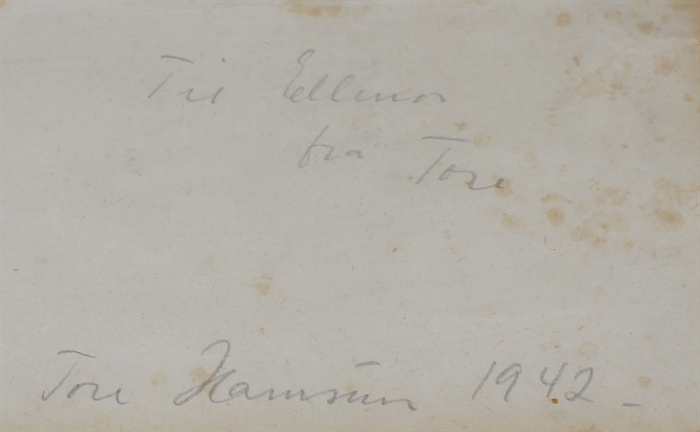 Til Ellinor
fra Tore
Tore Hamsun 1942 -